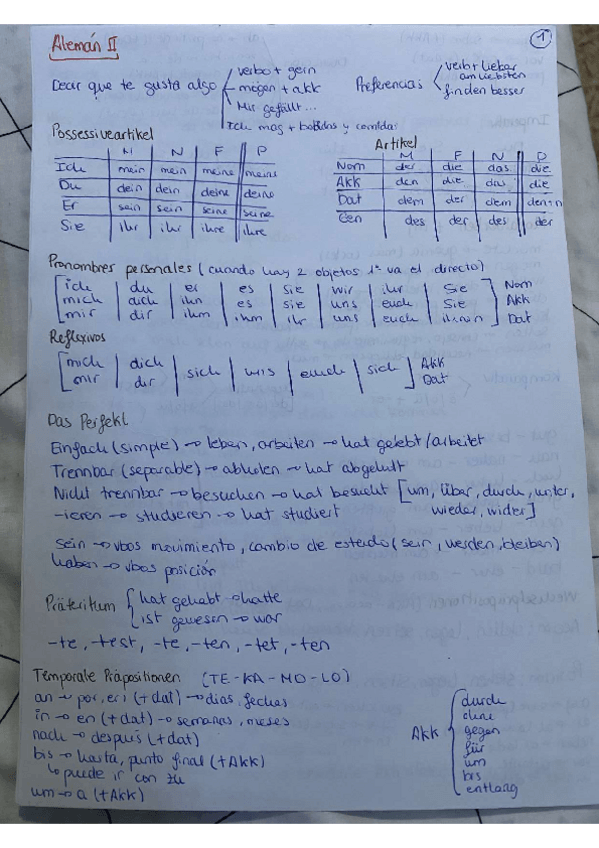 Alemán II
1
Decir que te gusta algo
verbo + gern
mögen + akk
Mir gefällt...
Ich mag + bebidas y comidas
Preferencias
verb + lieber
am liebsten
finden besser
Possessiveartikel
M N F P
Ich mein mein meine meine
Du dein dein deine deine
Er sein sein seine seine
Sie ihr ihr ihre ihre
Artikel
M F N D
Nom der die das die
Akk den die das die
Dat dem der dem den+n
Gen des der des der
Pronombres personales (cuando hay 2 objetos 1º va el directo)
ich du er es sie wir ihr Sie Nom
mich dich ihn es sie uns euch Sie Akk
mir dir ihm ihm ihr uns euch ihnen Dat
Reflexivos
mich dich sich uns euch sich Akk
mir dir Dat
Das Perfekt
Einfach (simple) → leben, arbeiten → hat gelebt/arbeitet
Trennbar (separable) → abholen → hat abgeholt
Nicht trennbar → besuchen → hat besucht [um, über, durch, unter,
-ieren → studieren → hat studiert wieder, wider]
sein → vbos movimiento, cambio de estado (sein, werden, bleiben)
haben → vbos posición
Präteritum
hat gehabt → hatte
ist gewesen → war
-te, -test, -te, -ten, -tet, -ten
Temporale Präpositionen (TE-KA-MO-LO)
an → por, en (+dat) → días, fechas
in → en (+dat) → semanas, meses
nach → después (+dat)
bis → hasta, punto final (+Akk)
↳ puede ir con zu
um → a (+Akk)
Akk
durch
ohne
gegen
für
um
bis
entlang